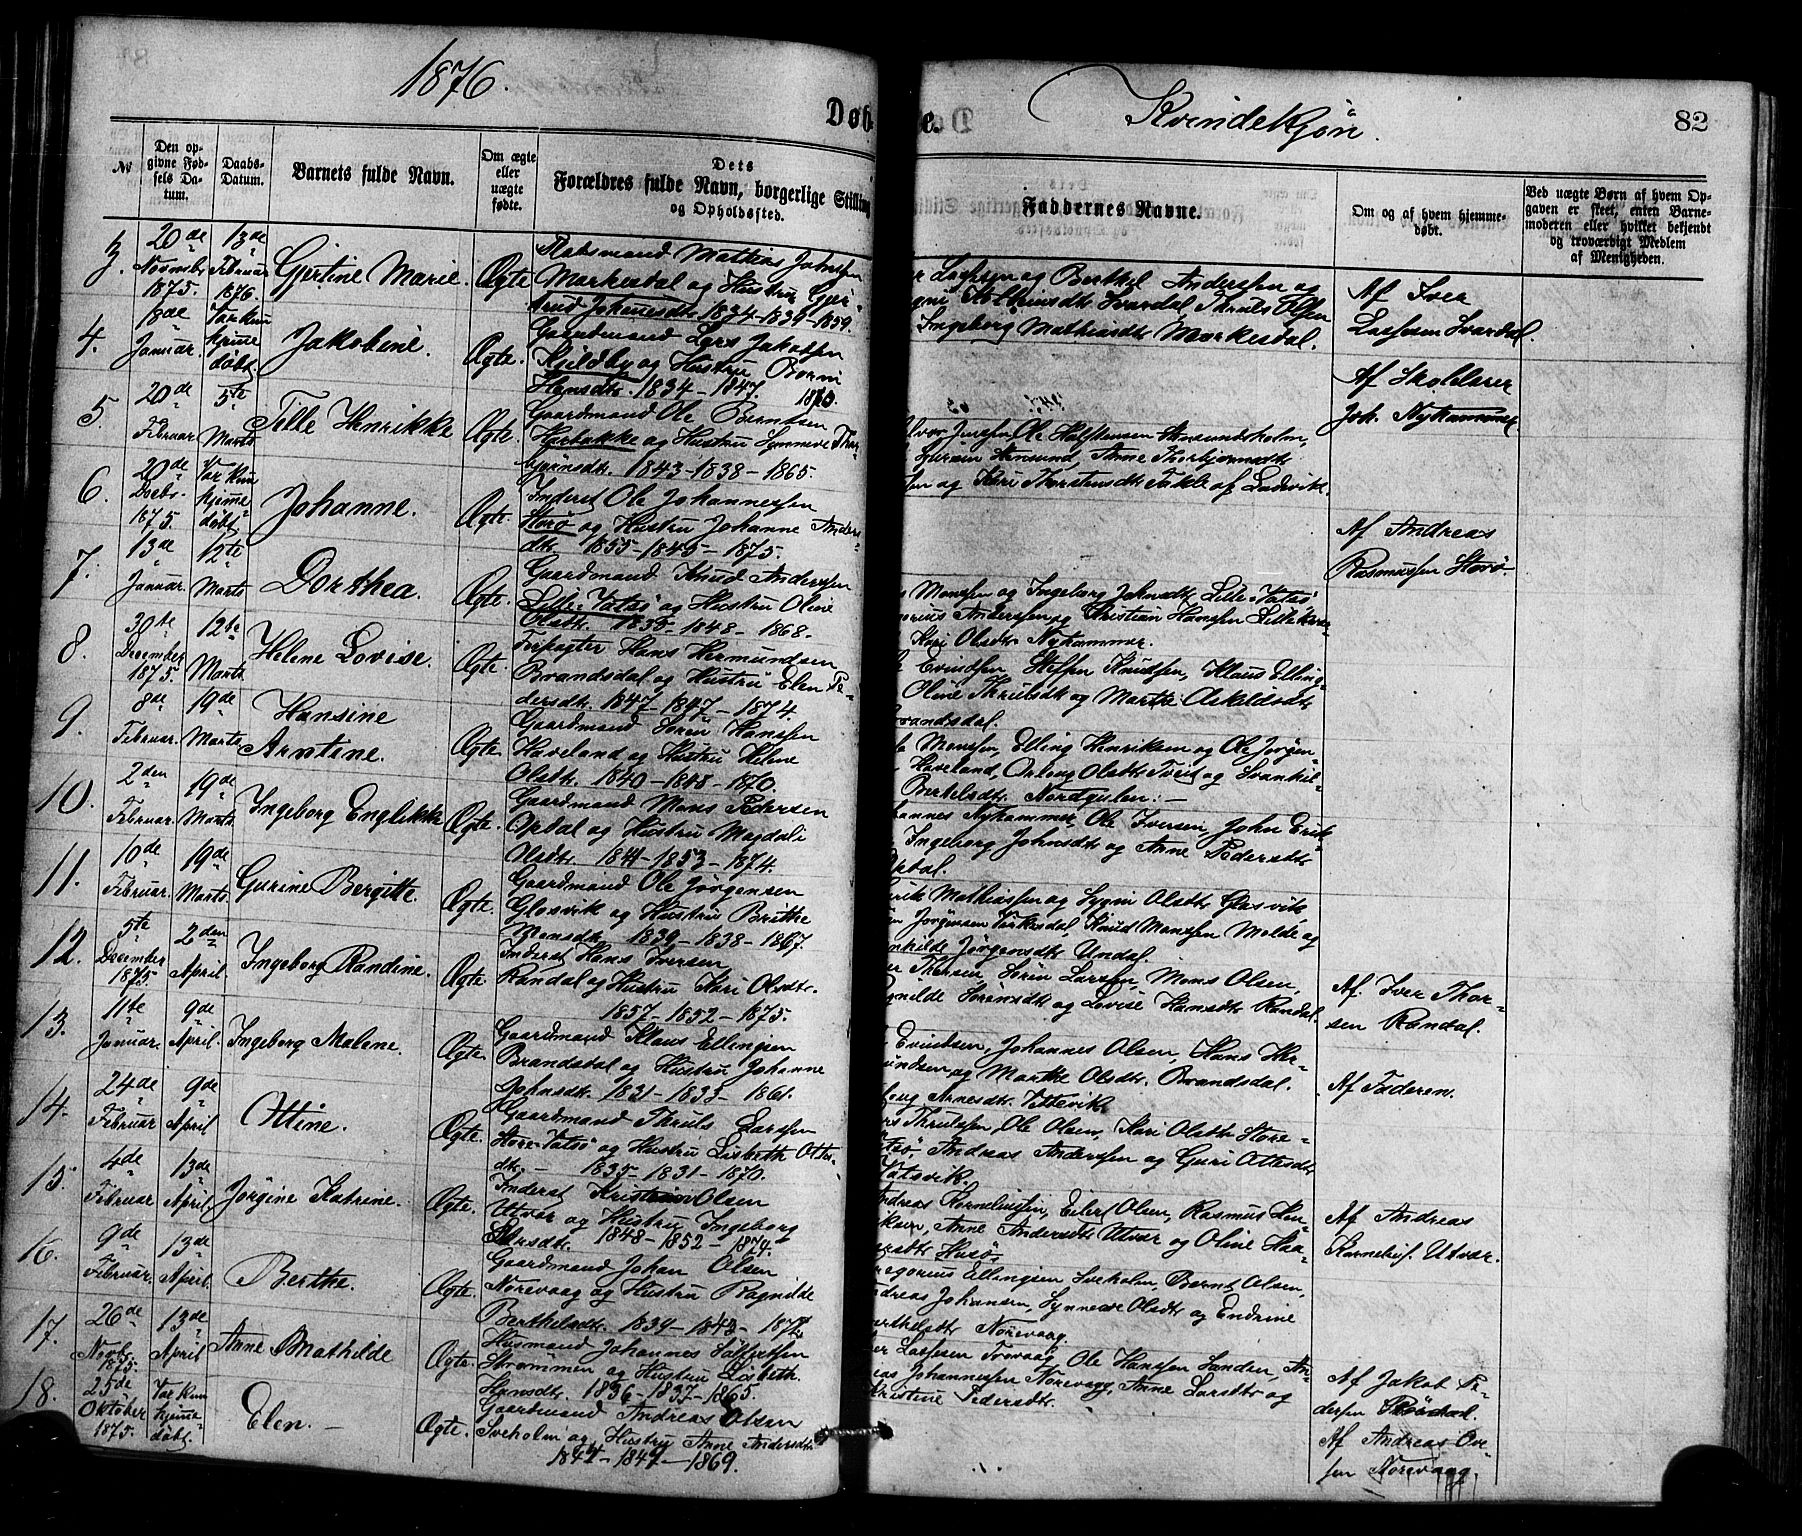 1876.
Døb
e.
Kvindekjøn.
82
№
Den op-
givne Fød-
sels Da-
tum.
Daabs-
Datum.
Barnets fulde Navn.
Om ægte
eller
uægte
fødte.
Dets
Forældres fulde Navn, borgerlige Stilling
og Opholdssted.
Faddernes Navne.
Om og af hvem hjemme-
døbt.
Ved uægte Børn af hvem Op-
gaven er skeet, enten Barne-
moderen eller hvilket bekjendt
og troværdigt Medlem
af Menigheden.
3. 20de Novmbr 1875. 13de Februar 1876. Gjertine Marie. Ægte
Mathias Johnssen
Markesdal og Hustru Gjer-
trud Johannesdtr. 1834-1839-1859.
Lassesen og Berthel Anderssen og
Kolbeinsdtr Svardal, Thruls Olsen
Ingeborg Mathiasdtr Markesdal.
Af Iver
Lassesen Svardal.
4. 18de Januar. Var kun hjemme døbt Jakobine. Ægte.
Gaardmand Lars Jakobsen
Kjeldby og Hustru Borni
Hansdtr. 1834-1847. 1870.
Af Skolelærer
Joh. Nyhammer
5. 20de Februar 5te Marts Tille Henrikke Ægte.
Gaardmand Ole Berntsen
Harbakke og Hustru Synneve Thor-
bjørnsdtr. 1843-1838-1865.
Ole Halfstensen
Anne Thorbjørnsdtr
og Kari Thorstensdtr Takle af Ladvik.
6. 20de Decbr. 1875. Var kun hjemme- døbt. Johanne. Ægte.
Inderst Ole Johannessen
Storø og Hustru Johanne Anders-
dtr. 1855-1845-1875.
Af Andreas
Rasmussen Storø.
7. 13de Januar. 12te Marts Dorthea. Ægte.
Gaardmand Knud Anderssen
Lille-Vatsø og Hustru Oline
Olsdtr. 1835-1848-1868.
Monssen og Ingeborg Johnsdtr Lille-Vatsø
Anderssen og Christian Hanssen
Kari Olsdtr Nyhammer.
8. 30te December 1875. 12te Marts Helene Lovise. Ægte.
Forpagter Hans Hermundsen
Brandsdal og Hustru Elen Pe-
dersdtr. 1847-1847-1874.
Evindsen Steffen Knudsen, Klaus Elling-
Oline Thrulsdtr og Marthe Askildsdtr
Brandsdal.
9. 8de Februar. 19de Marts Hansine
Arntine. Ægte
Gaardmand Sörin Hanssen
Haveland og Hustru Helene
Olsdtr. 1840-1848-1870.
Monssen, Elling Henriksen og Ole Jørgen-
Haveland, Olsdtr Tveit og
Bertelsdtr. Nordgulen. -
10. 2den Februar. 19de Marts. Ingeborg Englikke Ægte.
Gaardmand Mons Pedersen
Opdal og Hustru Magdali
Olsdtr. 1844-1853-1874.
Nyhammer, Ole Iversen, John Erik-
Ingeborg Johnsdtr og Anne Pedersdtr
Opdal.
11. 10de Februar. 19de Marts. Gurine Bergitte. Ægte.
Gaardmand Ole Jørgensen
Glosvik og Hustru Brithe
Monsdtr. 1839-1838-1867.
Mathiassen og Sygni Olsdtr Glosvik,
Jørgensen Knud Monssen Molde og
Jørgensdtr Undal.
12. 5te December 1875. 2den April. Ingeborg Randine. Ægte.
Inderst Hans Iversen
Randal og Hustru Kari Olsdtr.
1857-1852-1875.
Thorsen, Sörin Larssen, Mons Olsen,
Sörensdtr og Lovise Hansdtr Randal.
Af Iver Thor-
sen Randal.
13. 11te Januar. 9de April. Ingeborg Malene. Ægte.
Gaardmand Klaus Ellingsen
Brandsdal og Hustru Johanne
Johnsdtr. 1831-1833-1861.
Evindsen, Johannes Olsen, Hans Her-
mundsen og Marthe Olsdtr. Brandsdal.
Af Faderen.
14. 24de Februar 9de April Ottine. Ægte.
Gaardmand Thruls Larssen
Store-Vatsø og Hustru Lisbeth Ottes-
dtr. - 1835-1831-1870.
Arnesdtr.
Thrulssen, Ole Olsen, Kari Olsdtr Store-
Vatsø, Andreas Anderssen og Guri Ottesdtr
Vatsvik.
15. 4de Februar 13de April. Jørgine Katrine. Ægte.
Inderst Kristian Olsen
Utvær og Hustru Ingeborg
Larsdtr. 1848-1852-1874.
Andreas Korneliussen, Eiler Olsen, Rasmus Hen-
riksen, Anne Andersdtr Utvær og Oline Haa-
Husø.
Af Andreas
Korneliusf. Utvær.
16. 9de Februar. 13de April. Berthe. Ægte.
Gaardmand Johan Olsen
Norevaag og Hustru Ragnilde
Berthelsdtr. 1839-1843-1872.
Gregorius Ellingsen Sveholm, Bernt Olsen,
Andreas Johansen, Synneve Olsdtr og Endrine
Berthelsdtr Norevaag.
17. 26de Novbr. 1875. 13de April Anne Mathilde Ægte.
Husmand Johannes
Strømmen og Hustru Lisbeth
Hansdtr. 1836-1837-1865.
Lassesen Ole Hanssen Sanden, An-
dreas Johannessen Norevaag, Anne Larsdtr og
Kristine Pedersdtr.
Af Jakob Pe-
dersen
18. 25de Oktober 1875. Var kun hjemme- døbt. Elen. - Ægte.
Gaardmand Andreas Olsen
Sveholm og Hustru Anne Andersdtr
1844-1847-1869.
Af Andreas
Norevaag.